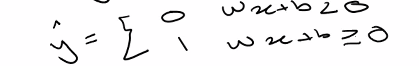 ŷ = { 0 wx+b < 0
1 wx+b ≥ 0